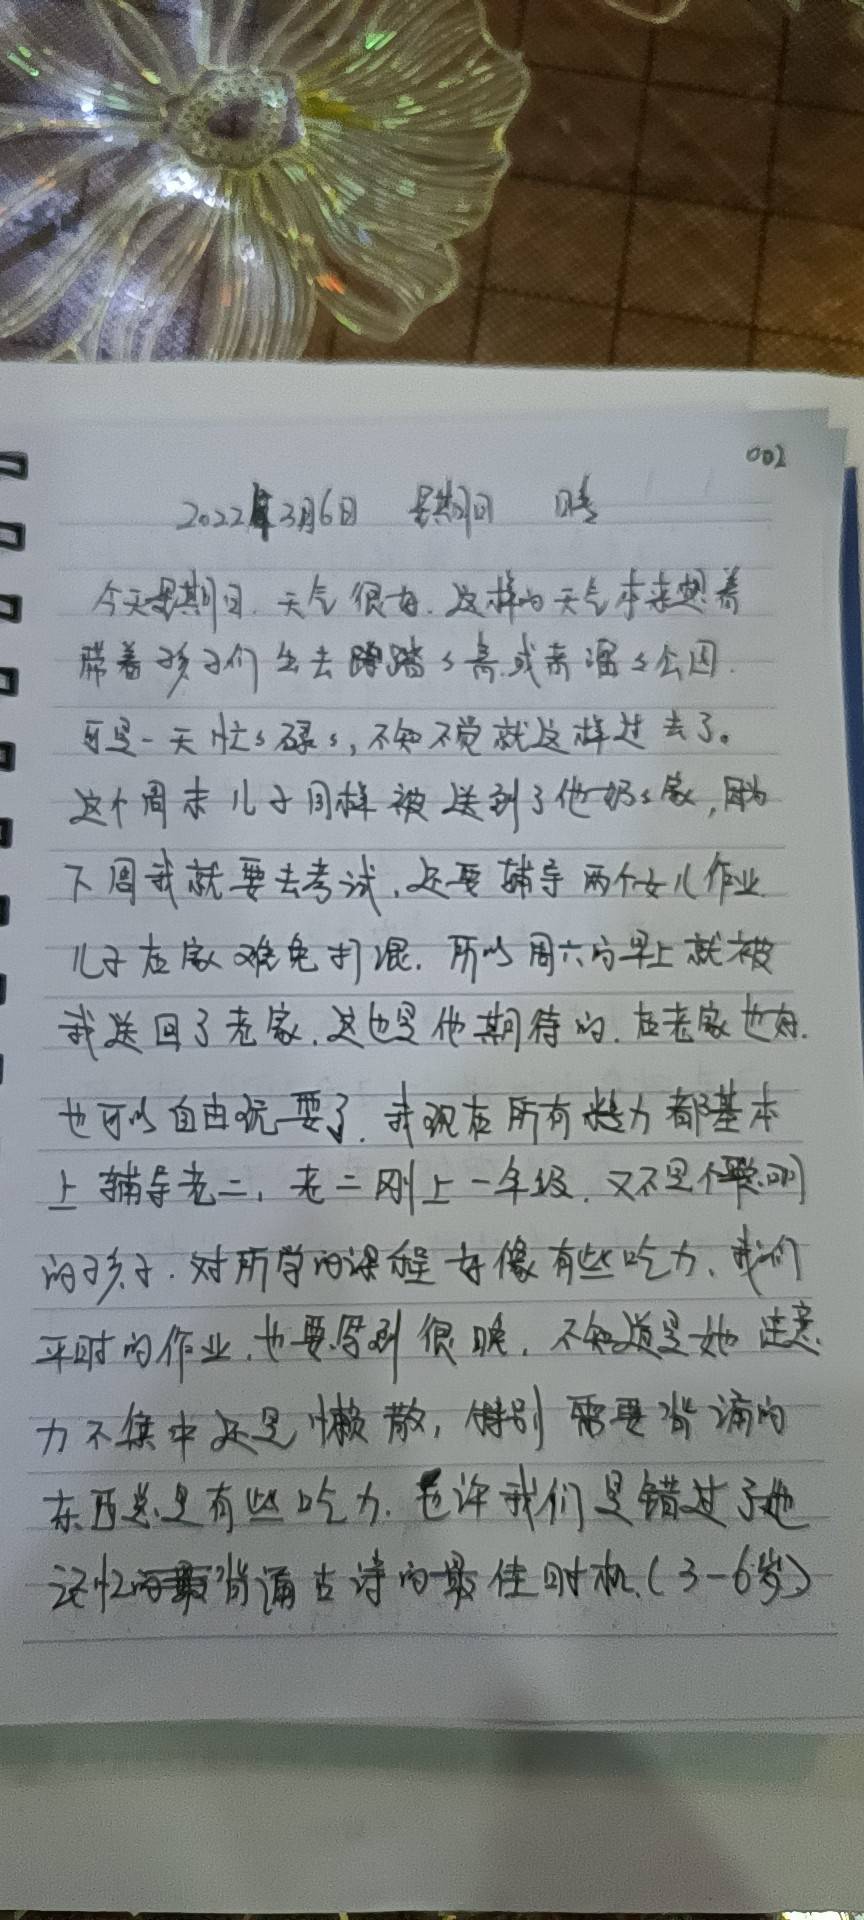 002
2022年3月6日 星期日 晴
今天星期日.天气很好.这样的天气本来想着
带着孩子们出去踏踏青.或者溜溜公园.
可是一天忙忙碌碌,不知不觉就这样过去了。
这个周末儿子同样被送到了他奶奶家,因为
下周我就要去考试,还要辅导两个女儿作业.
儿子在家难免打混.所以周六的早上就被
我送回了老家.这也是他期待的.在老家也好.
也可以自由玩耍了.我现在所有精力都基本
上辅导老二,老二刚上一年级.又不是个聪明
的孩子.对所学的课程好像有些吃力、我们
平时的作业.也要写到很晚.不知道是她注意
力不集中还是懒散,特别需要背诵的
东西总是有些吃力.也许我们是错过了她
记忆背诵古诗的最佳时机.(3-6岁)